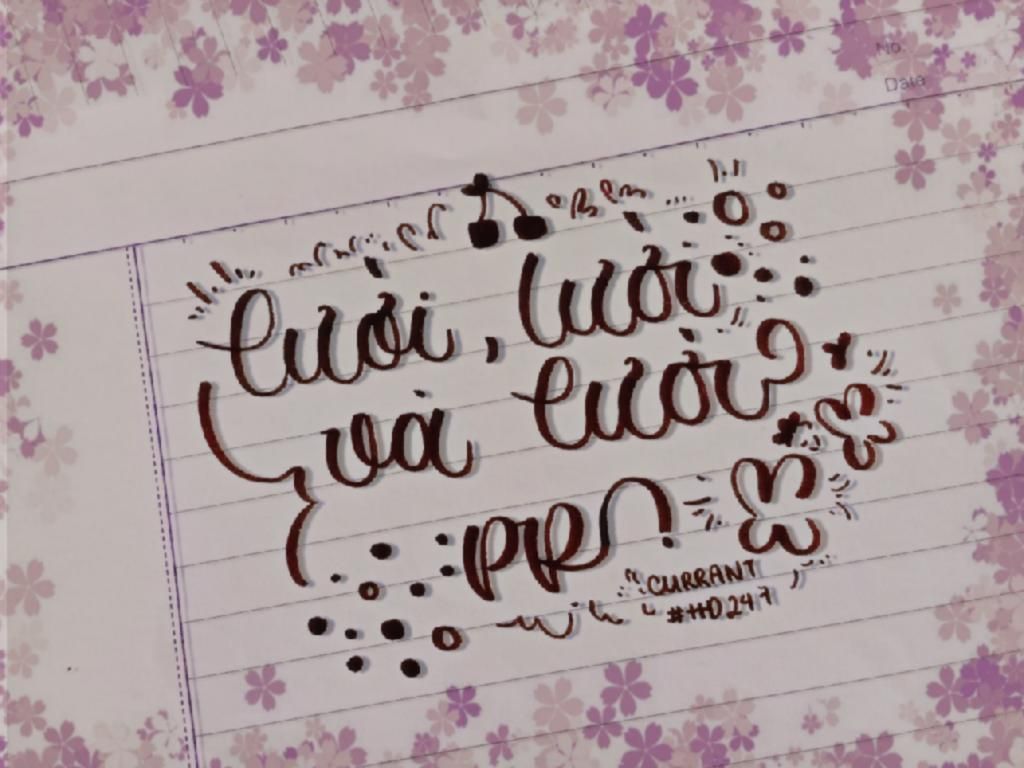 No.
Date
Lười, lười
và lười
PR
CURRANT
#HD247